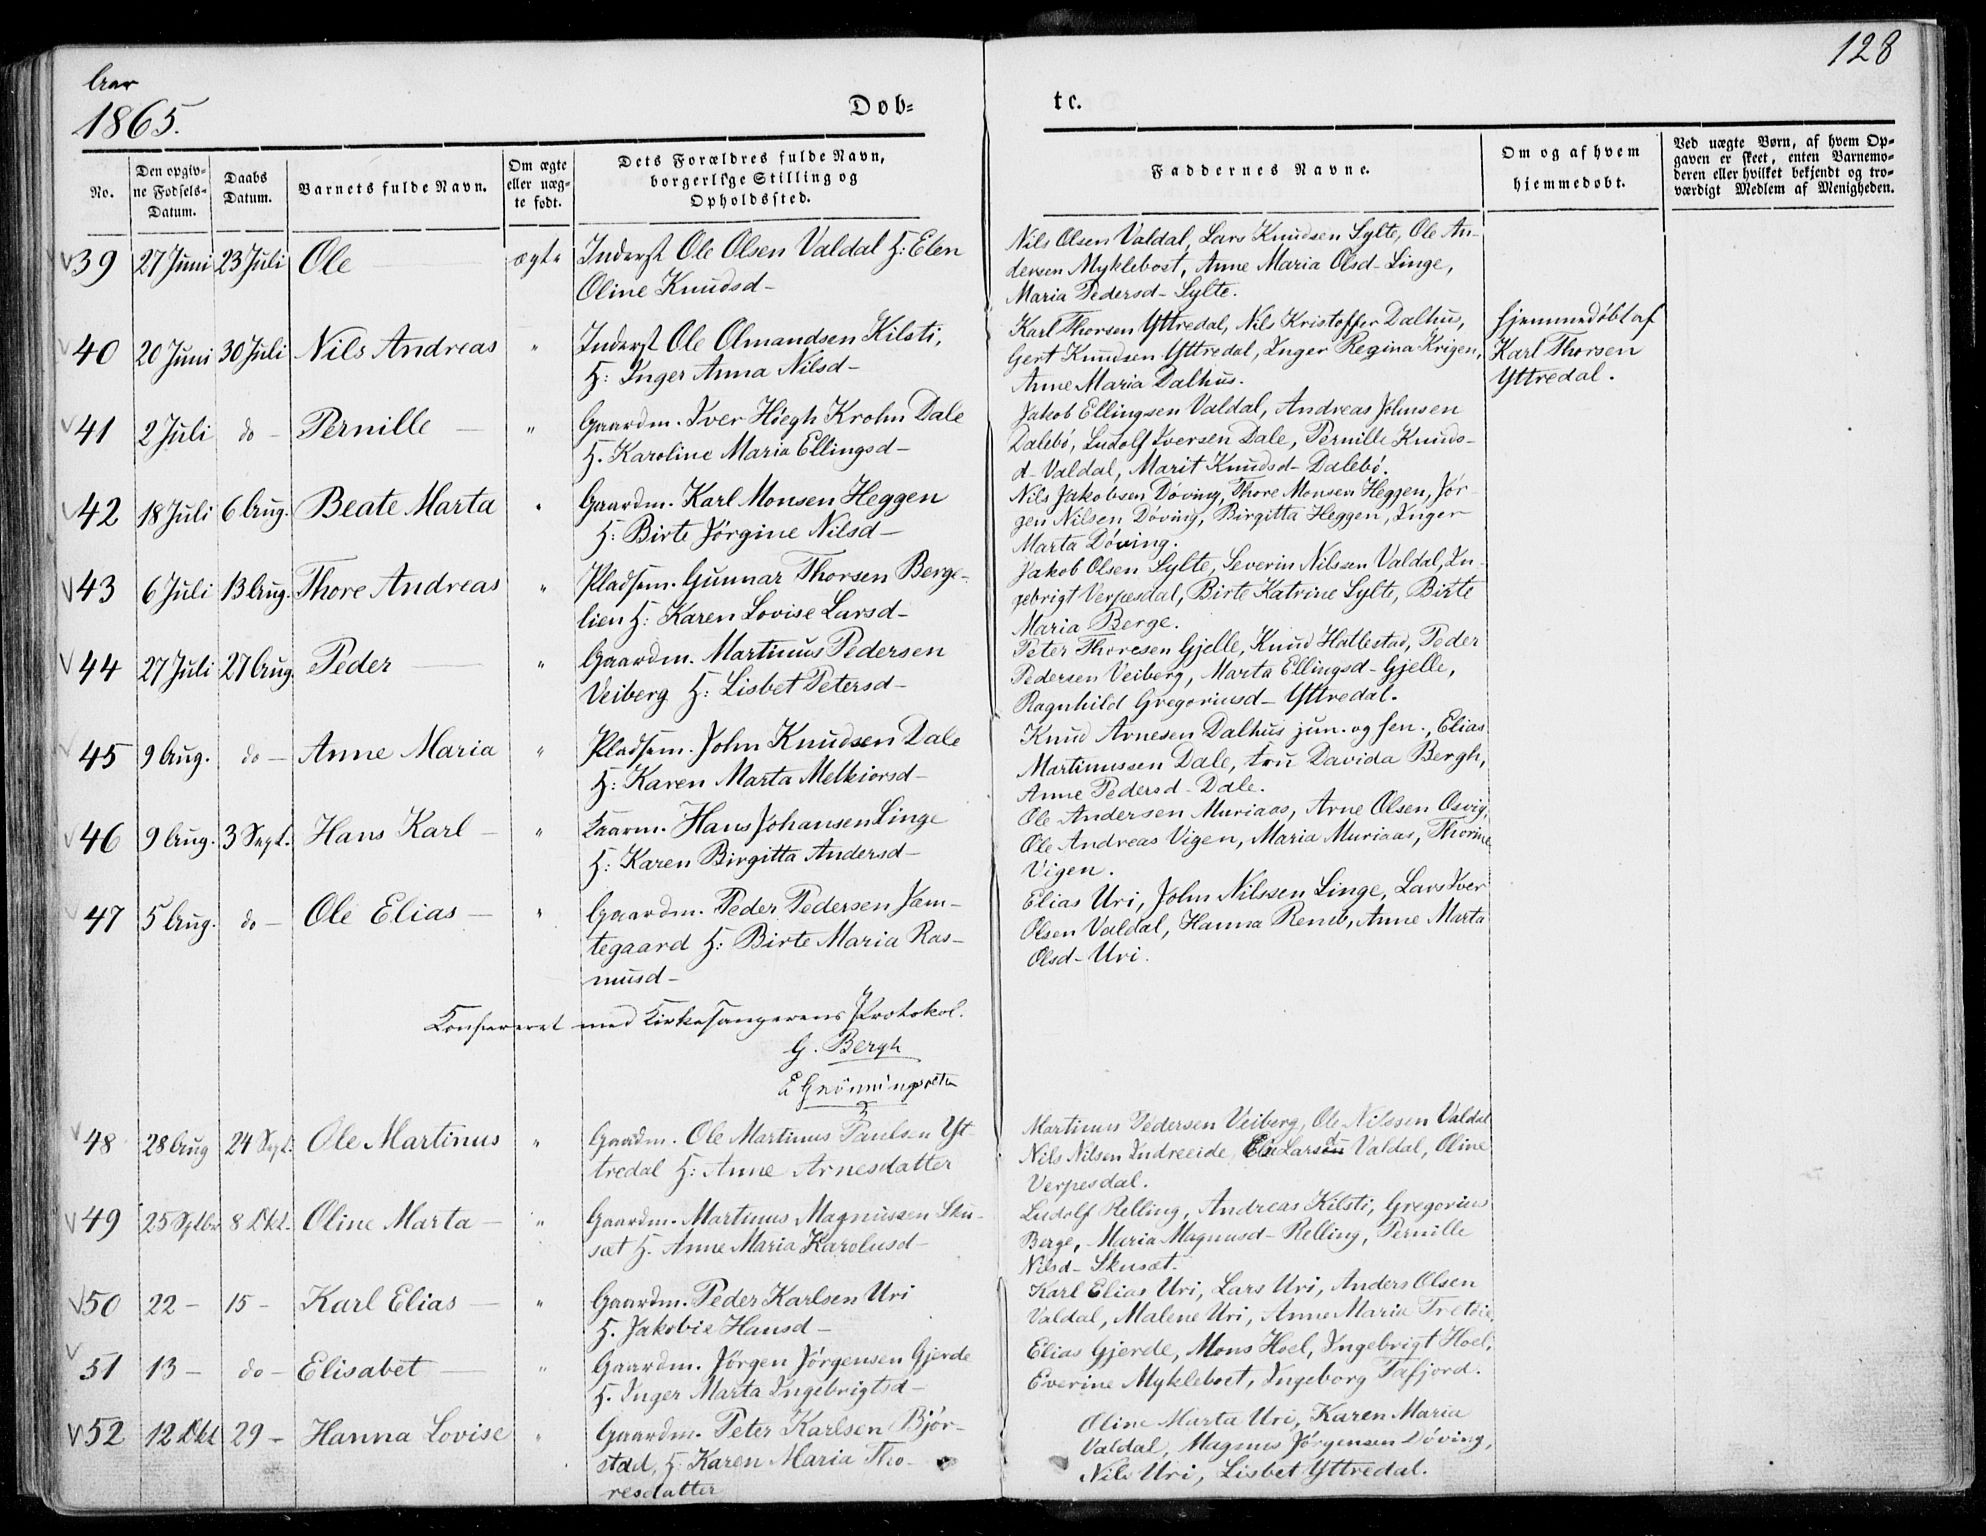 128
Aar
1865.
Døb=
te.
No.
Den opgiv-
ne Fødsels-
Datum.
Daabs
Datum.
Barnets fulde Navn.
Om ægte
eller uæg-
te født.
Dets Forældres fulde Navn,
borgerlige Stilling og
Opholdssted.
Faddernes Navne.
Om og af hvem
hjemmedøbt.
Ved uægte Børn, af hvem Op-
gaven er skeet, enten Barnemo-
deren eller hvilket bekjendt og tro-
værdigt Medlem af Menigheden.
39 27 Juni 23 Juli Ole — ægte Inderst Ole Olsen Valdal H: Elen
Oline Knudsd-
Nils Olsen Valdal, Lars Knudsen Sylte, Ole An-
dersen Myklebost, Anne Maria Olsd- Linge,
Maria Pedersd- Sylte.
40 20 Juni 30 Juli Nils Andreas " Inderst Ole Olmandsen Kilsti,
H: Inger Anna Nilsd-
Karl Thorsen Yttredal, Nils Kristoffer Dalhus,
Gert Knudsen Yttredal, Inger Regina Krigen,
Anne Maria Dalhus.
hjemmedøbt af
Karl Thorsen
Yttredal.
41 2 Juli do - Pernille — " Gaardm. Iver Høegh Krohn Dale
H. Karoline Maria Ellingsd-
Jakob Ellingsen Valdal, Andreas Johnsen
Dalebø, Ludolf Iversen Dale, Pernille Knuds-
d- Valdal, Marit Knudsd- Dalebø.
42 18 Juli 6 Aug. Beate Marta " Gaardm. Karl Monsen Heggen
H: Birte Jørgine Nilsd-
Nils Jakobsen Døving, Thore Monsen Heggen, Jør-
gen Nilsen Døving, Birgitta Heggen, Inger
Marta Døving.
43 6 Juli 13 Aug. Thore Andreas " Pladsm. Gunnar Thorsen Berge-
lien H: Karen Lovise Larsd-
Jakob Olsen Sylte, Severin Nilssen Valdal, In-
gebrigt Verpesdal, Birte Katrine Sylte, Birte
Maria Berge.
44 27 Juli 27 Aug. Peder — " Gaardm. Martinus Pedersen
Veiberg H: Lisbet Petersd-
Peter Thoresen Gjelle, Knud Hatlestad, Peder
Pedersen Veiberg, Marta Ellingsd- Gjelle,
Ragnhild Gregoriusd- Yttredal.
45 9 Aug. do - Anne Maria " Pladsm. John Knudsen Dale
H: Karen Marta Melkiorsd-
Knud Arnesen Dalhus jun. og sen., Elias
Martinussen Dale, Fru Davida Bergh,
Anne Pedersd- Dale.
46 9 Aug. 3 Sept. Hans Karl - " Kaarm. Hans Johansen Linge
H: Karen Birgitta Andersd-
Ole Andersen Muriaas, Arne Olsen Osvig,
Ole Andreas Vigen, Maria Muriaas, Thorine
Vigen.
47 5 Aug. do - Ole Elias - " Gaardm. Peder Pedersen Jam-
tegaard H: Birte Maria Ras-
musd-
Elias Uri, John Nilssen Linge, Lars Iver
Olsen Valdal, Hanna Reneb, Anne Marta
Olsd- Uri.
Konfereret med Kirkesangerens Protokol.
G. Bergh
E Grønningsæter
48 28 Aug 24 Sept. Ole Martinus " Gaardm. Ole Martinus Paulsen Yt
tredal H: Anne Arnesdatter
Martinus Pedersen Veiberg, Ole Nilssen Valdal
Nils Nilsen Indreeide, Eli Larsd Valdal, Oline
Verpesdal.
49 25 Septbr. 8 Okt. Oline Marta - " Gaardm. Martinus Magnussen Sku-
sæt H. Anne Maria Karolusd-
Ludolf Relling, Andreas Kilsti, Gregorius
Berge, Maria Magnusd- Relling, Pernille
Nilsd- Skusæt.
50 22 - 15 - Karl Elias — " Gaardm. Peder Karlsen Uri
H. Jakobie Hansd-
Karl Elias Uri, Lars Uri, Anders Olsen
Valdal, Malene Uri, Anne Maria Fretøie,
51 13 - do - Elisabet — " Gaardm. Jørgen Jørgensen Gjerde
H. Inger Marta Ingebrigtsd-
Elias Gjerde, Mons Hoel, Ingebrigt Hoel,
Everine Myklebost, Ingeborg Tafjord.
52 12 Okt 29 - Hanna Lovise " Gaardm. Peter Karlsen Bjør-
stad, H. Karen Maria Tho-
resdatter
Oline Marta Uri, Karen Maria
Valdal, Magnus Jørgensen Døving,
Nils Uri, Lisbet Yttredal.